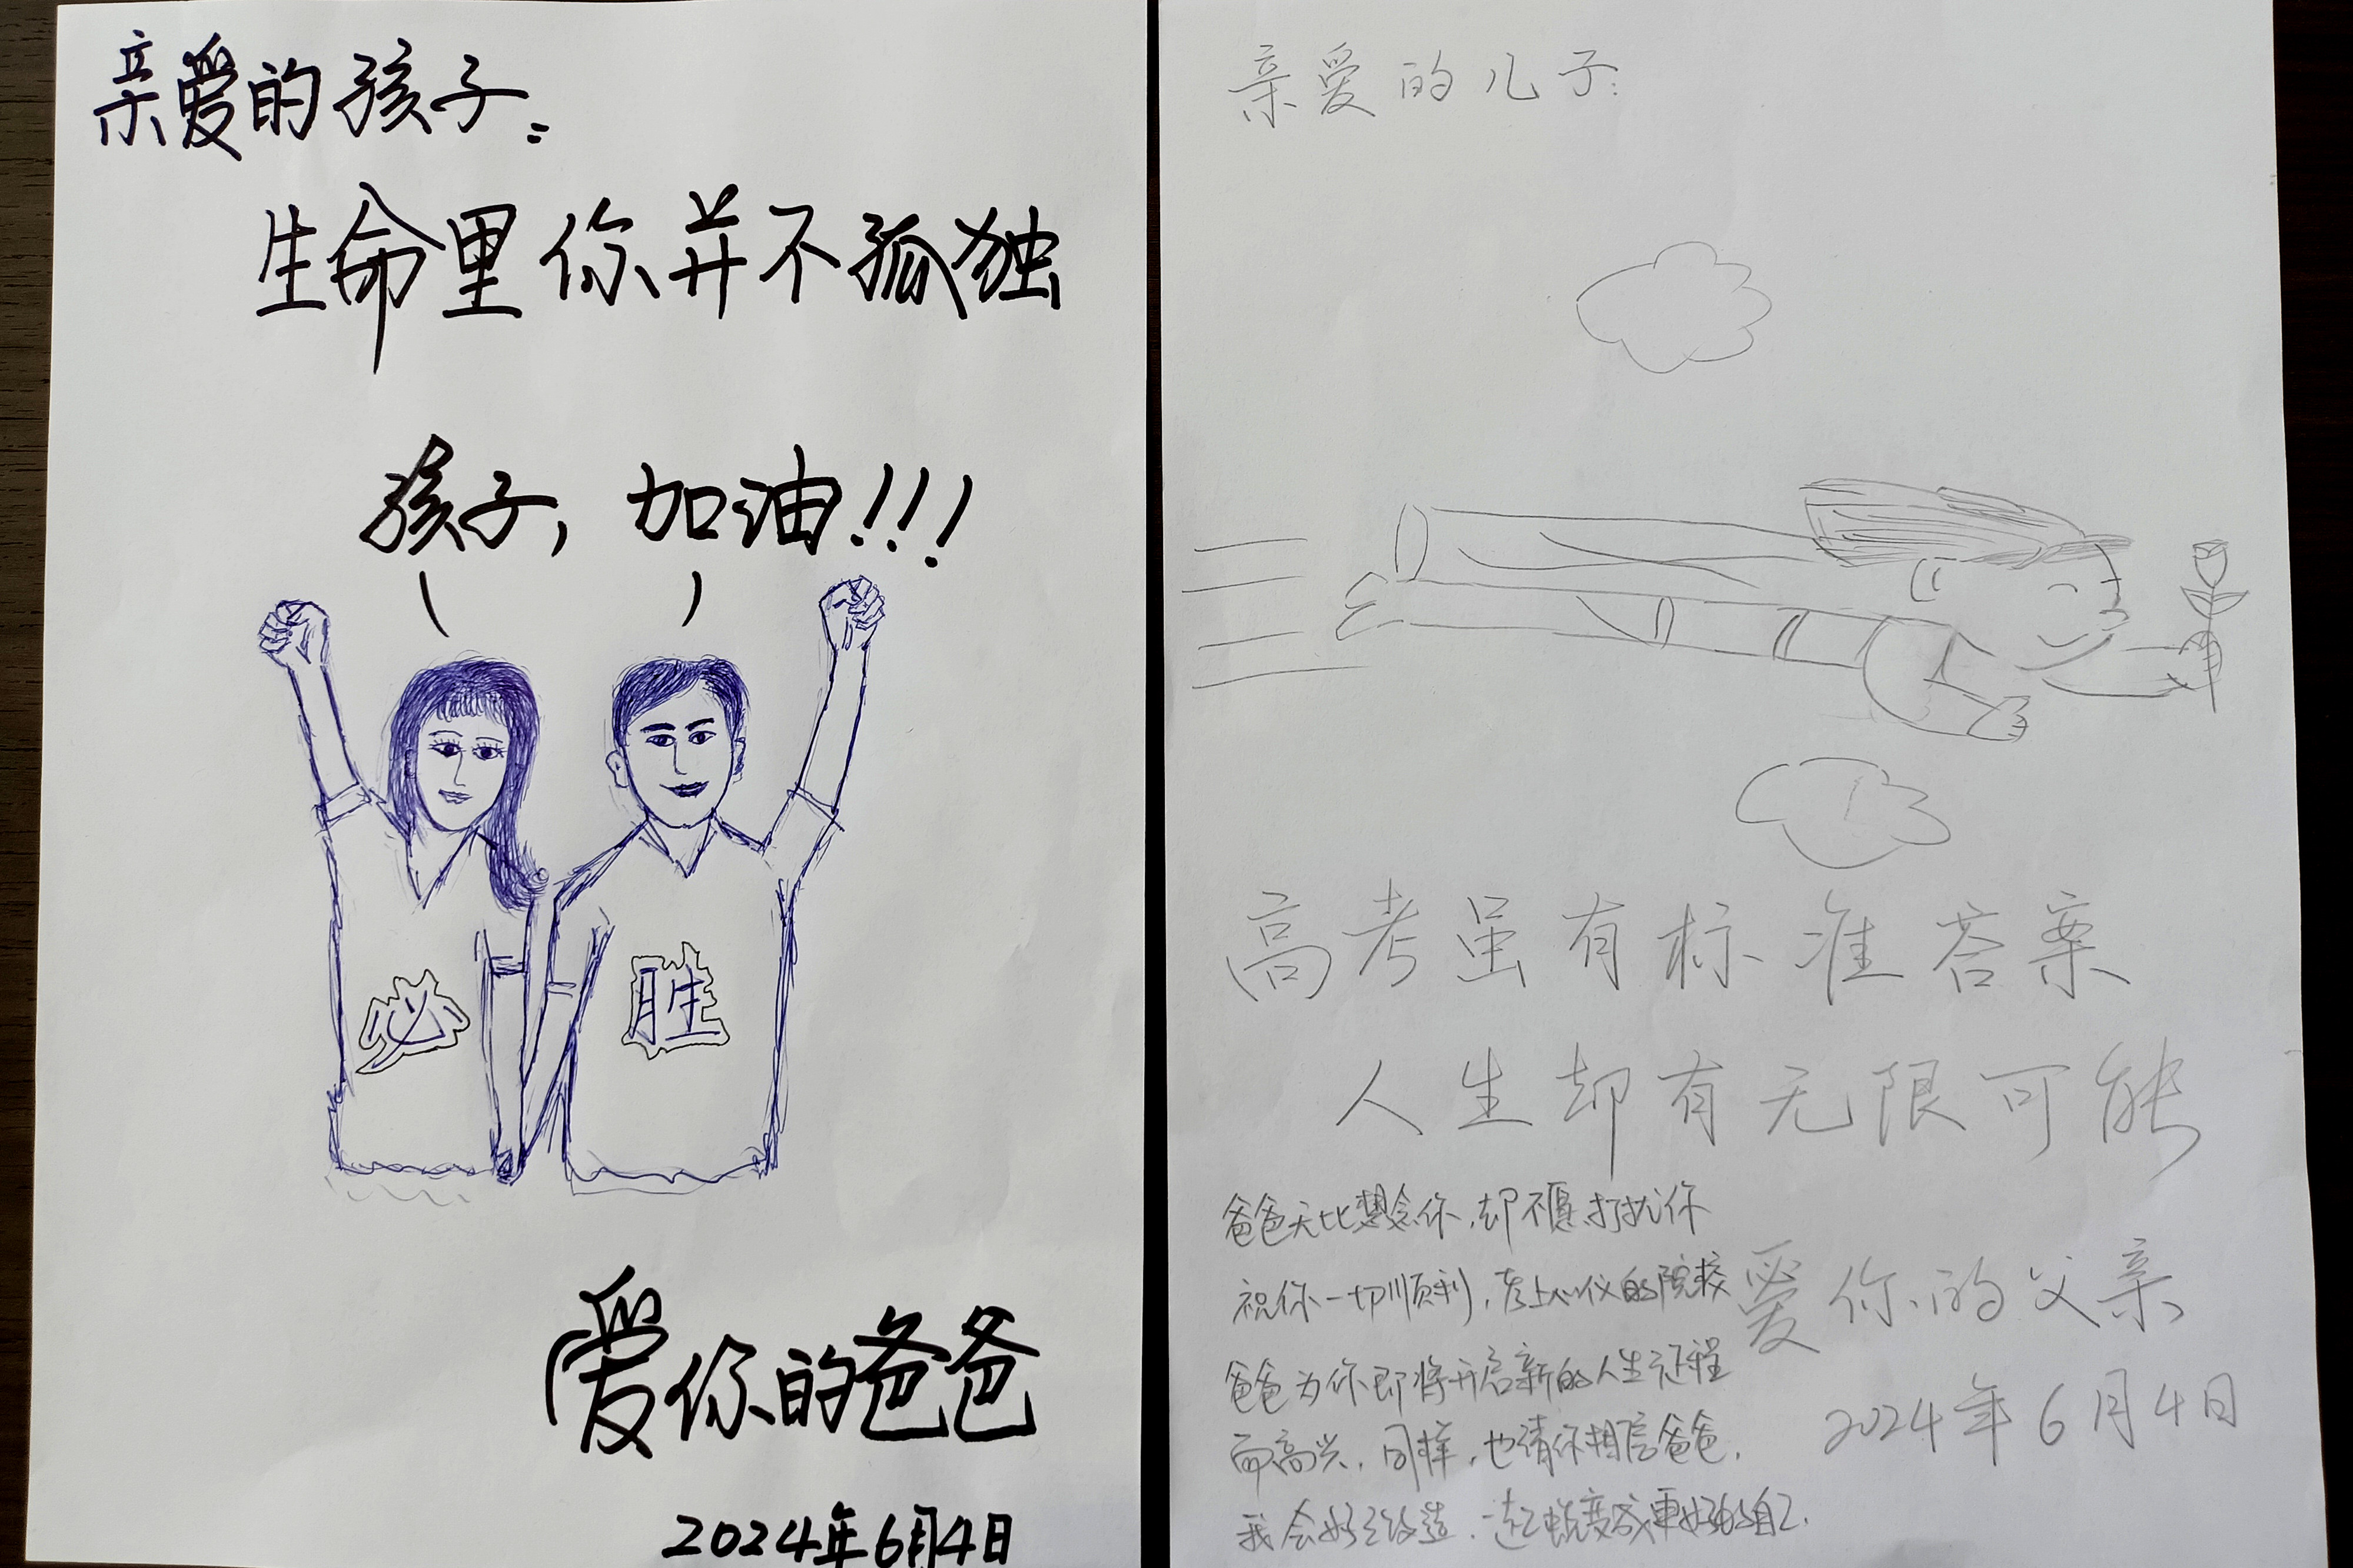 亲爱的孩子:
生命里你并不孤独
孩子, 加油!!!
必 胜
爱你的爸爸
2024年6月4日
亲爱的儿子:
高考虽有标准答案
人生却有无限可能
爸爸无比想念你,却不愿打扰你
祝你一切顺利,考上心仪的院校
爸爸为你即将开启新的人生征程
而高兴,同样,也请你相信爸爸,
我会好好改造,一起蜕变成更好的自己.
爱你的父亲
2024年6月4日